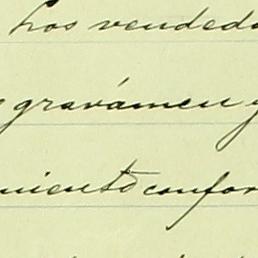 Los vended
gravámen y
miento confor